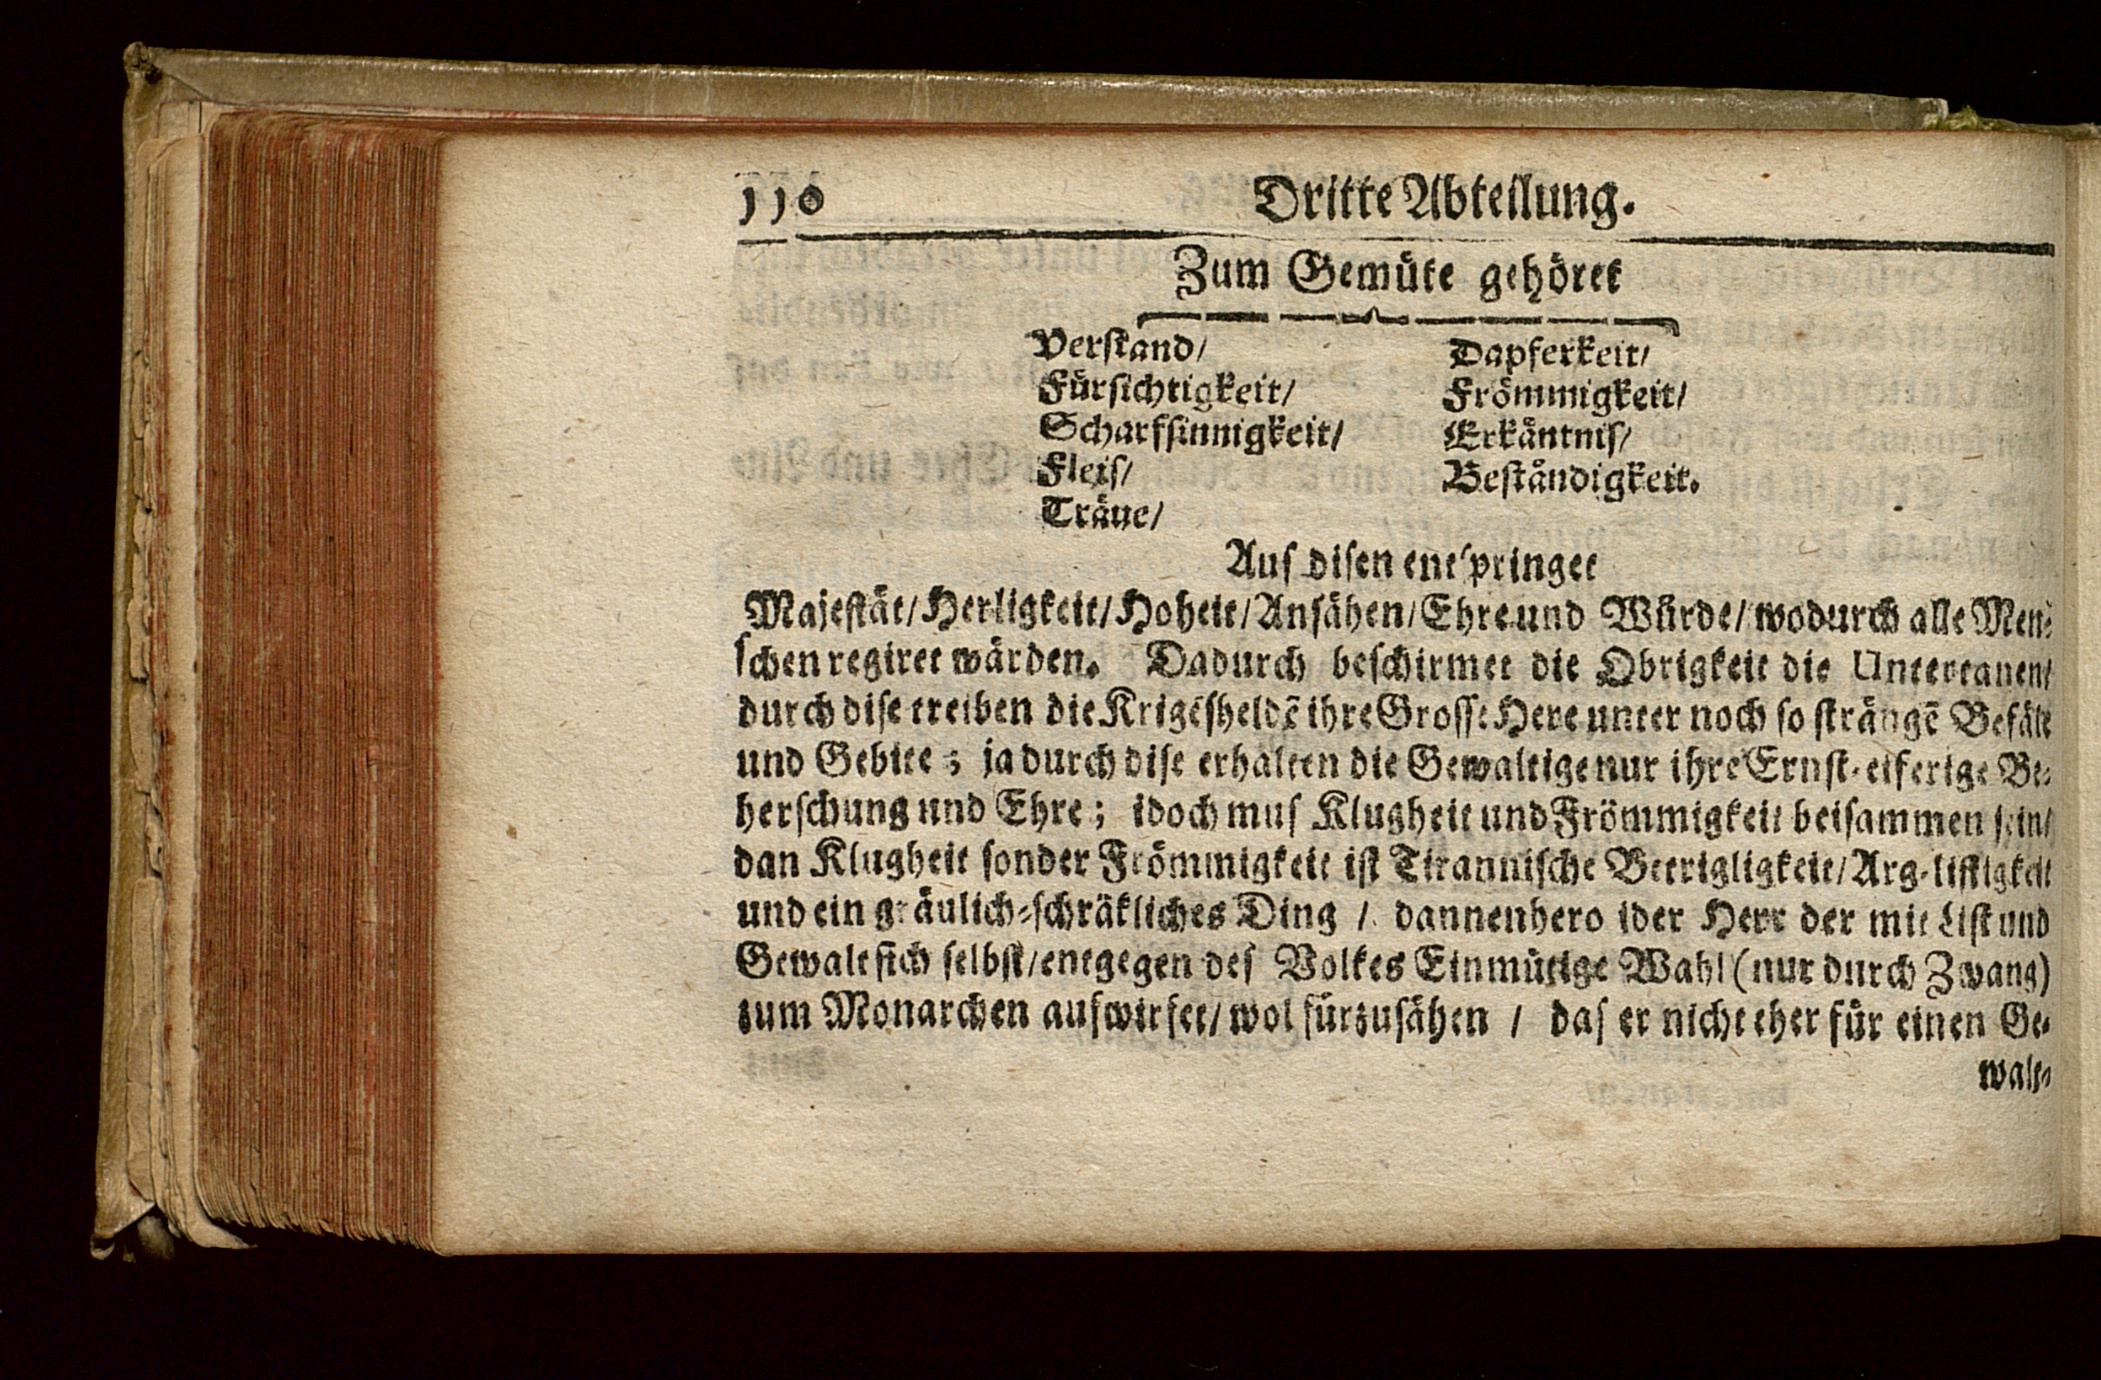 110 Dritte Abteilung.
Zum Gemüte gehöret
Verſtand/
Fürſichtigkeit/
Scharfſinnigkeit/
Fleiſ/
Träue/
Dapferkeit/
Frömmigkeit/
Erkäntniſ/
Beſtändigkeit.
Auſ diſen entſpringet
Majeſtät/Herligkeit/Hoheit/Anſähen/Ehre und Würde/wodurch alle Men⸗
ſchen regiret wärden. Dadurch beſchirmet die Obrigkeit die Untertanen/
durch diſe treiben die Krigẽsheldẽ ihre Groſſe Here unter noch ſo ſträngẽ Befält
und Gebite; ja durch diſe erhalten die Gewaltige nur ihre Ernſt-eiferige Be⸗
herſchung und Ehre; idoch muſ Klugheit und Frömmigkeit beiſammen ſein/
dan Klugheit ſonder Frömmigkeit iſt Tiranniſche Betrigligkeit/Arg-liſtigkeit
und ein gräulich⸗ſchräkliches Ding / dannenhero ider Herr der mit Liſt und
Gewalt ſich ſelbſt/entgegen deſ Volkes Einmütige Wahl (nur durch Zwang)
zum Monarchen aufwirfet/wol fürzuſähen / daſ er nicht eher für einen Ge⸗
walt⸗